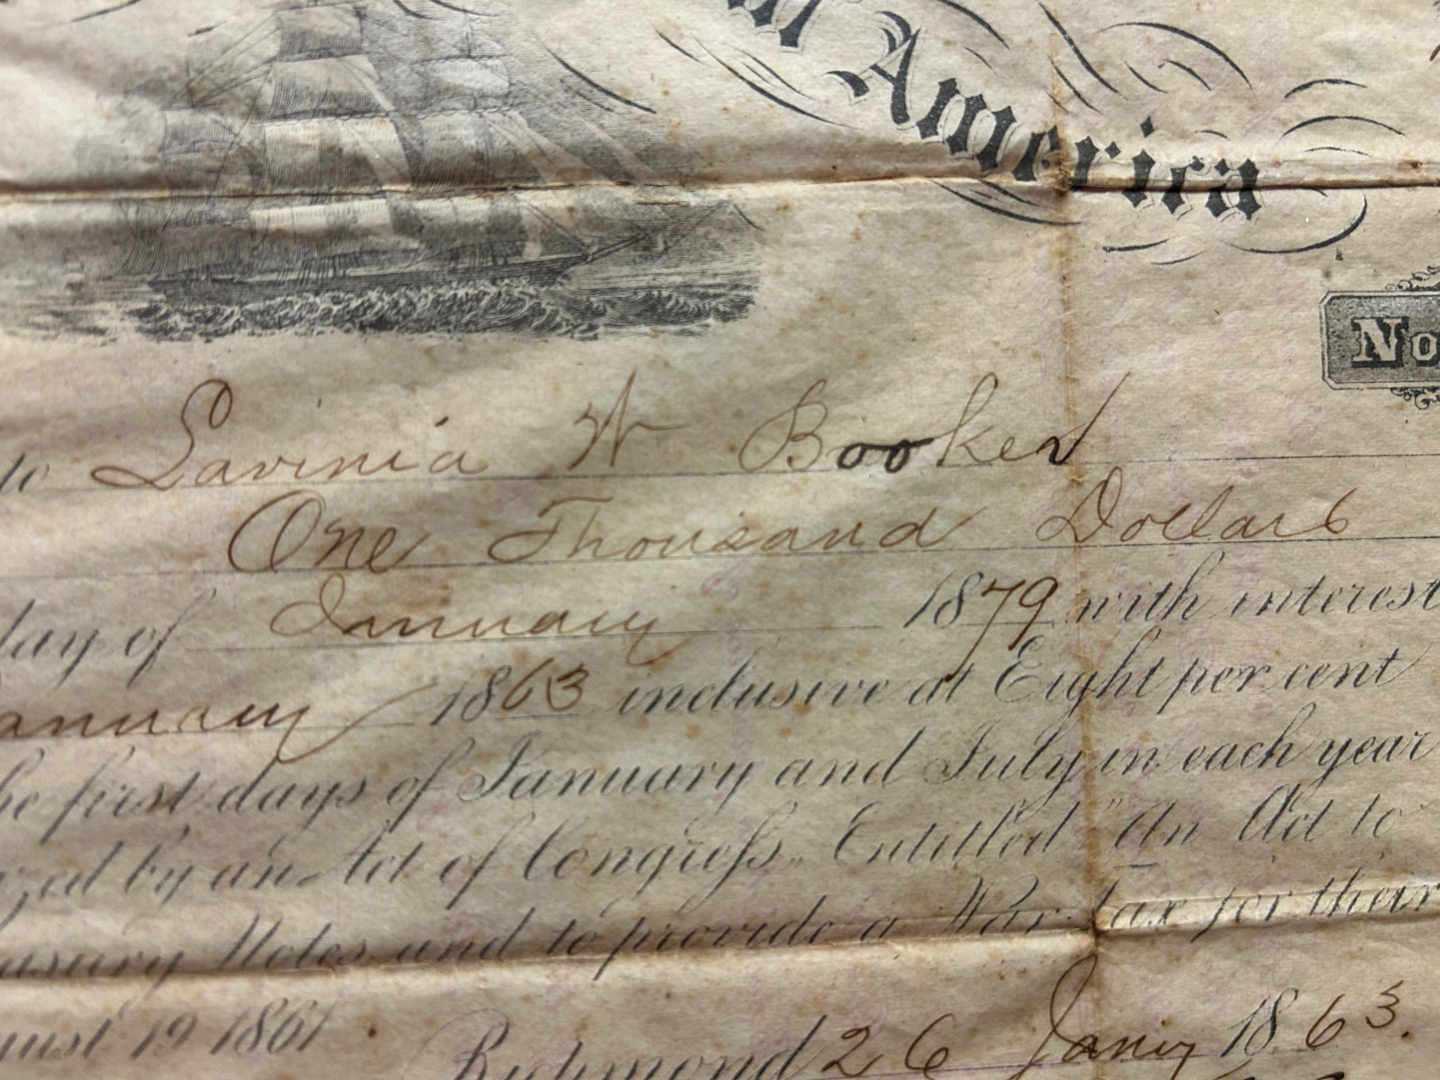 America
No
to Lavinia W Booker
One Thousand Dollars
day of January 1879 with interest
anuary 1863 inclusive at Eight per cent
he first days of January and July in each year
zed by an Act of Congress, Entitled "An Act to
asury Notes and to provide a War tax for their
gust 19 1861
Richmond 26 Jany 1863.